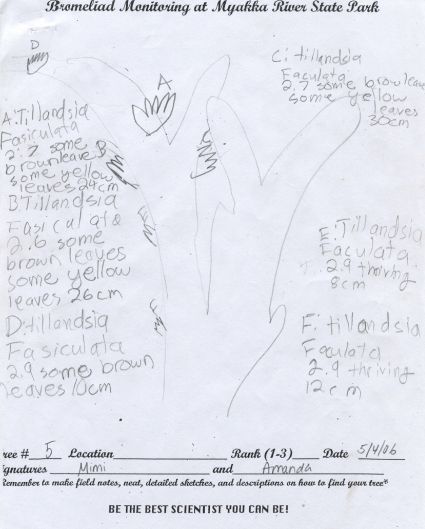 Bromeliad Monitoring at Myakka River State Park
D
A
B
C: tillandsia
Faculata
2.7 some brown leaves
some yellow
leaves
30cm
A: Tillandsia
Fasiculata
2.7 some
brown leave
some yellow
leaves 24cm
B Tillandsia
Fasiculata
2.6 some
brown leaves
some yellow
leaves 26cm
D: tillandsia
Fasiculata
2.9 some brown
leaves 10cm
E: Tillandsia
Faculata
2.9 thriving
8cm
F: tillandsia
Faculata
2.9 thriving
12cm
ree # 5 Location Rank (1-3) Date 5/4/06
ignatures Mimi and Amanda
Remember to make field notes, neat, detailed sketches, and descriptions on how to find your tree*
BE THE BEST SCIENTIST YOU CAN BE!